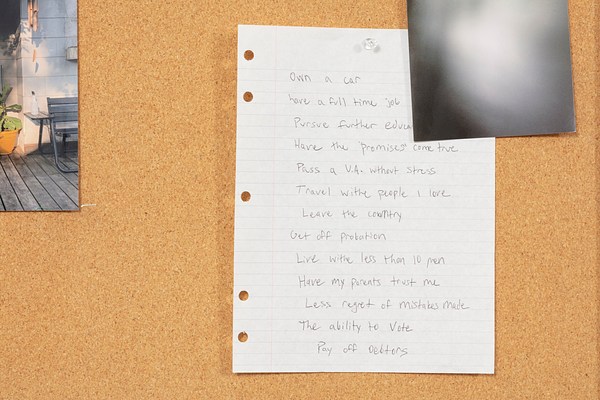 Own a car
have a full time job
Pursue further
Have the "promises" come true
Pass a U.A. without stress
Travel withe people I love
Leave the country
Get off probation
Live withe less than 10 men
Have my parents trust me
Less regret of mistakes made
The ability to Vote
Pay off Debtors